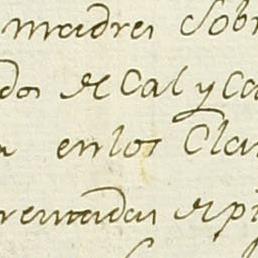 madres Sobr
dos de Cal y Ca
en los Cla
rentadas de pi